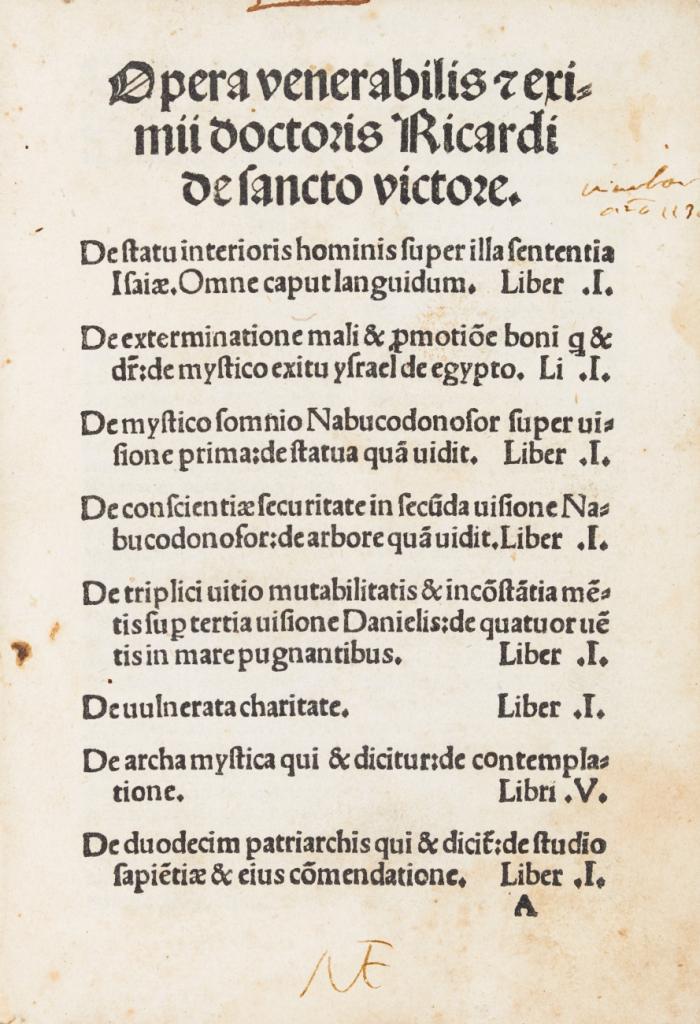 Opera venerabilis ⁊ exi⸗
mii doctoris Ricardi
de sancto victore.
De ſtatu interioris hominis ſuper illa ſententia
Iſaiæ. Omne caput languidum. Liber .I.
De exterminatione mali & ꝓmotiōe boni q &
dr̄: de myſtico exitu yſrael de egypto. Li .I.
De myſtico ſomnio Nabucodonoſor ſuper ui⸗
ſione prima: de ſtatua quā uidit. Liber .I.
De conſcientiæ ſecuritate in ſecūda uiſione Na⸗
bucodonoſor: de arbore quā uidit. Liber .I.
De triplici uitio mutabilitatis & incōſtātia mē⸗
tis ſuꝑ tertia uiſione Danielis: de quatuor uē
tis in mare pugnantibus. Liber .I.
De uulnerata charitate. Liber .I.
De archa myſtica qui & dicitur: de contempla⸗
tione. Libri .V.
De duodecim patriarchis qui & dicit᷑: de ſtudio
ſapiētiæ & eius cōmendatione. Liber .I.
A